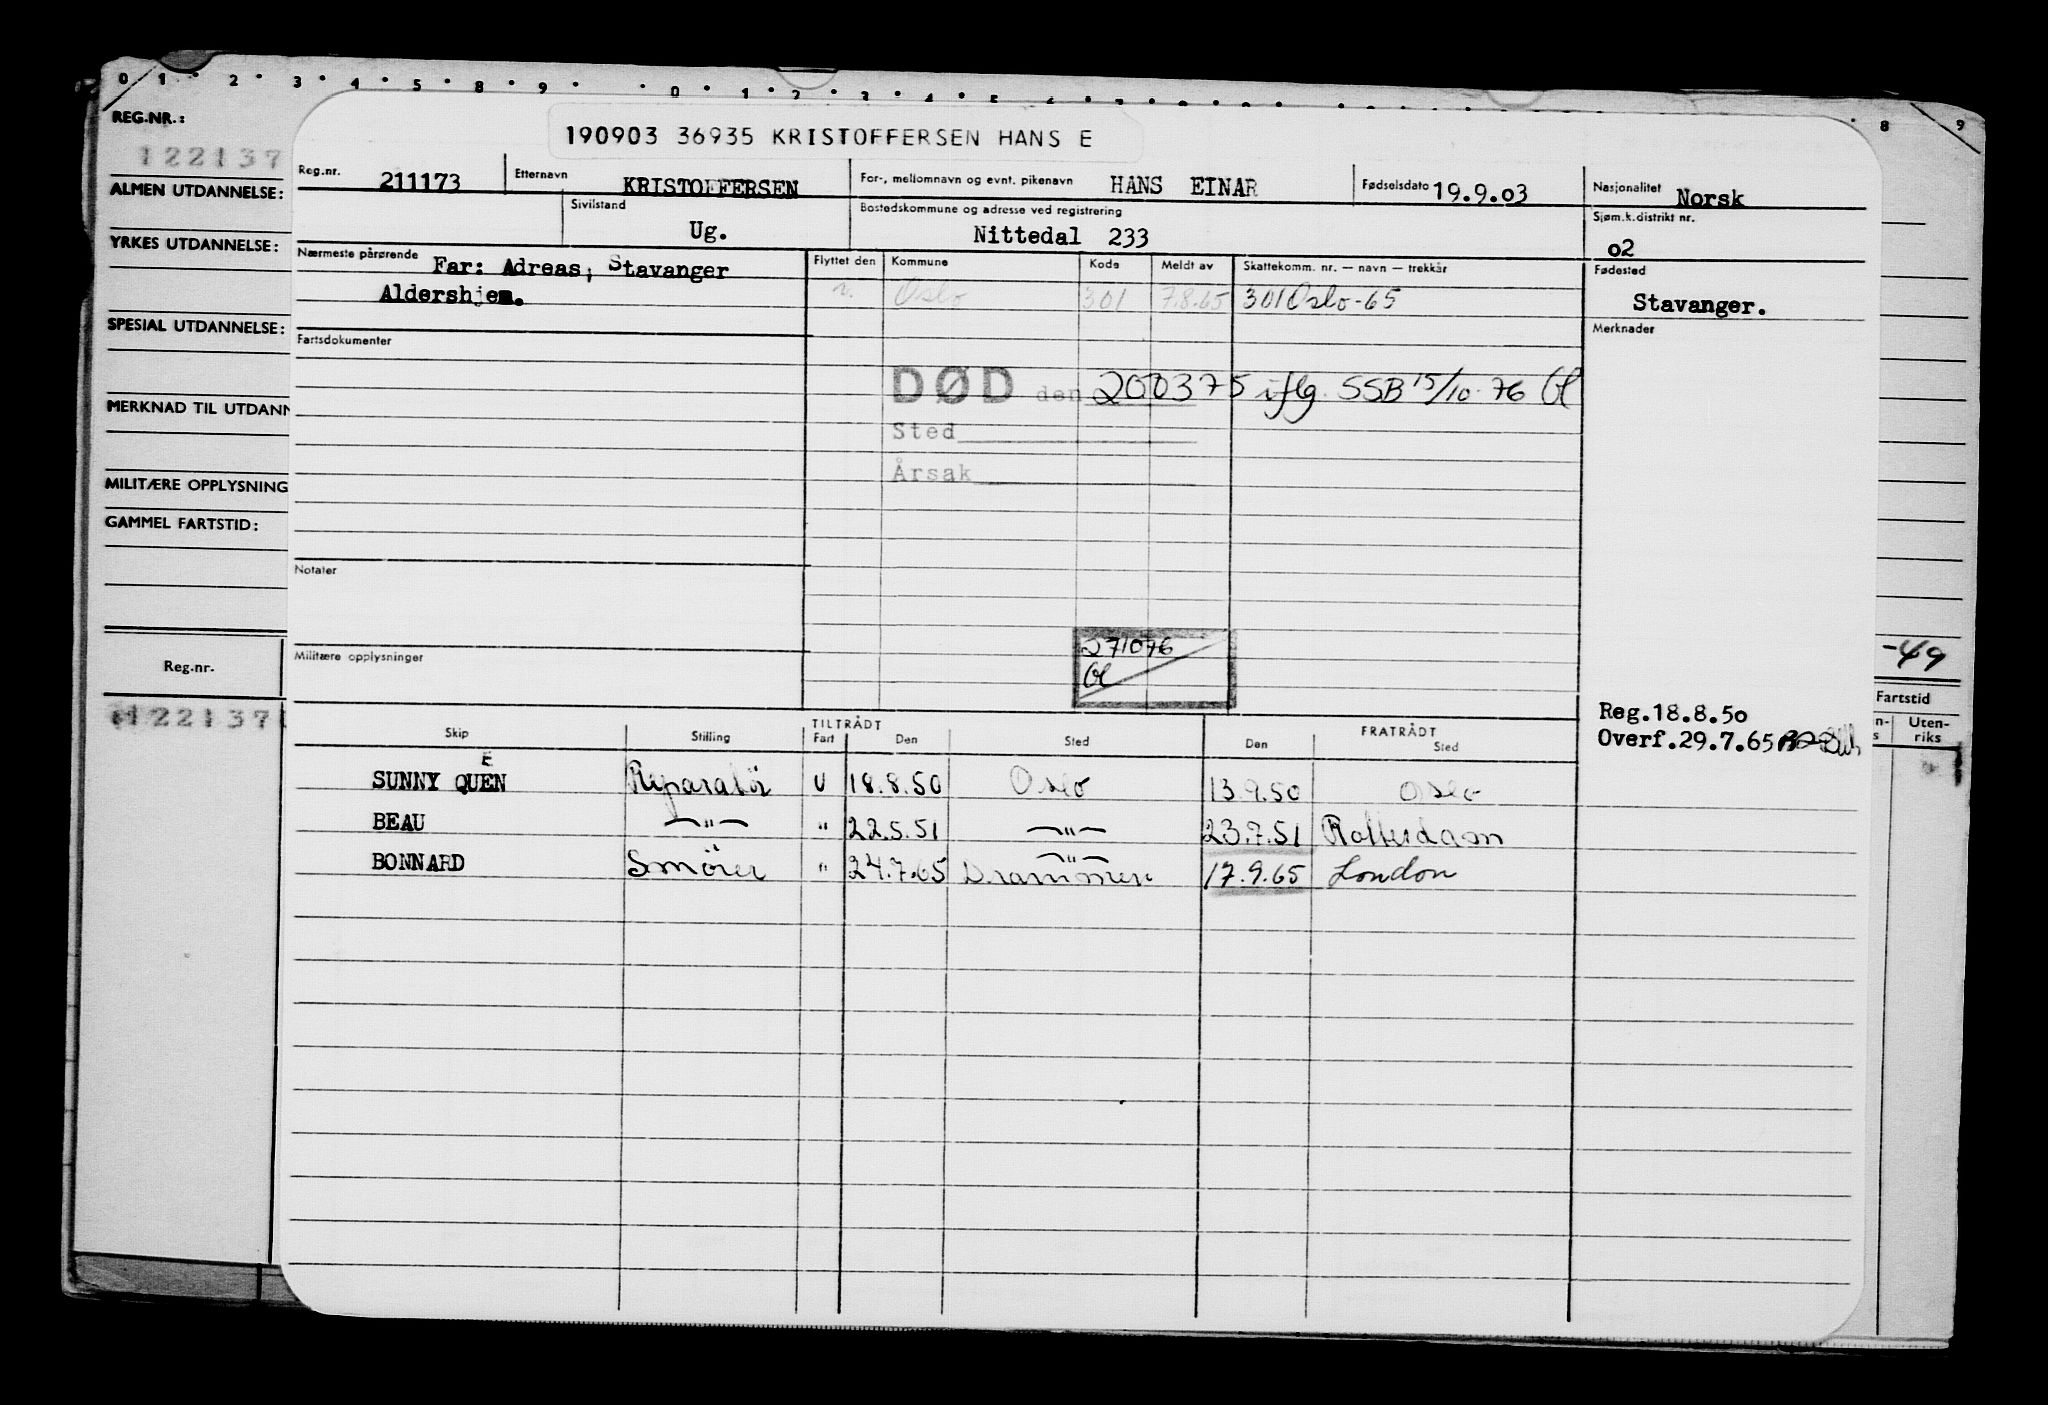 0 1 2 3 4 5 8 9 0 1 2 3 4 5 8 9
REG.NR.:
122137
ALMEN UTDANNELSE:
YRKES UTDANNELSE:
SPESIAL UTDANNELSE:
MERKNAD TIL UTDANN
MILITÆRE OPPLYSNING
GAMMEL FARTSTID:
Reg.nr.
122137
190903 36935 KRISTOFFERSEN HANS E
Reg.nr. 211173 Etternavn KRISTOFFERSEN For-, mellomnavn og evnt. pikenavn HANS EINAR Fødselsdato 19.9.03 Nasjonalitet Norsk
Sivilstand Ug. Bostedskommune og adresse ved registrering Nittedal 233 Sjøm.k.distrikt nr. 02
Nærmeste pårørende Far: Adreas, Stavanger Flyttet den Kommune Kode Meldt av Skattekomm. nr. — navn — trekkår Fødested
Aldershjem. Oslo 301 7.8.65 301 Oslo-65 Stavanger.
Fartsdokumenter Merknader
DØD den 200375 iflg. SSB 15/10-76
Sted
Årsak
Notater
271076
Militære opplysninger
-49
Fartstid
Uten-
riks
Reg.18.8.50
Overf.29.7.65
TILTRÅDT FRATRÅDT
Skip Stilling Fart Den Sted Den Sted
E
SUNNY QUEN Reparatør U 18.8.50 Oslo 13.9.50 Oslo
BEAU —"— " 22.5.51 —"— 23.7.51 Rotterdam
BONNARD Smører " 24.7.65 Drammen 17.9.65 London